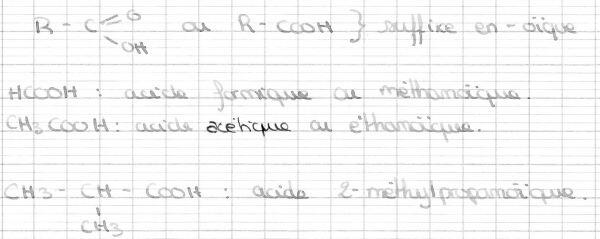 R - C = O
OH ou R - COOH } suffixe en - oïque
HCOOH : acide formique ou méthanoïque.
CH3COOH : acide acétique ou éthanoïque.
CH3 - CH - COOH : acide 2-méthylpropanoïque.
CH3